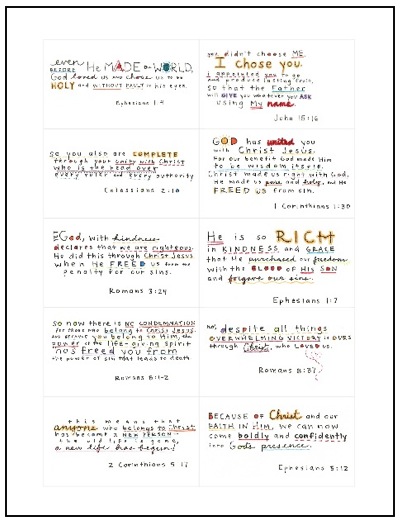 even BEFORE He MADE the WORLD,
God loved us and chose us to be
HOLY and WITHOUT FAULT in his eyes.
Ephesians 1:4
you didn't choose ME.
I chose you.
I appointed you to go
and produce lasting fruit,
so that the Father
will GIVE you whatever you ASK
using My name.
John 15:16
So you also are COMPLETE
through your unity with Christ
who is the head over
every ruler and every authority
Colossians 2:10
GOD has united you
with Christ Jesus.
For our benefit God made Him
to be wisdom itself.
Christ made us right with God,
He made us pure and holy, and He
FREED us from sin.
1 Corinthians 1:30
God, with kindness
declares that we are righteous.
He did this through Christ Jesus
when He FREED us from the
penalty for our sins.
Romans 3:24
He is so RICH
in KINDNESS and GRACE
that He purchased our freedom
with the BLOOD of HIS SON
and forgave our sins.
Ephesians 1:7
so now there is NO CONDEMNATION
for those who belong to Christ Jesus.
and because you belong to Him, the
power of the life-giving spirit
has freed you from
the power of sin that leads to death
Romans 8:1-2
despite all things
OVERWHELMING VICTORY is OURS
through Christ, who LOVED us.
Romans 8:37
this means that
anyone who belongs to Christ
has become a NEW PERSON.
the old life is gone,
a new life has begun!
2 Corinthians 5:17
BECAUSE OF Christ and our
FAITH IN HIM, we can now
come boldly and confidently
into God's presence.
Ephesians 3:12